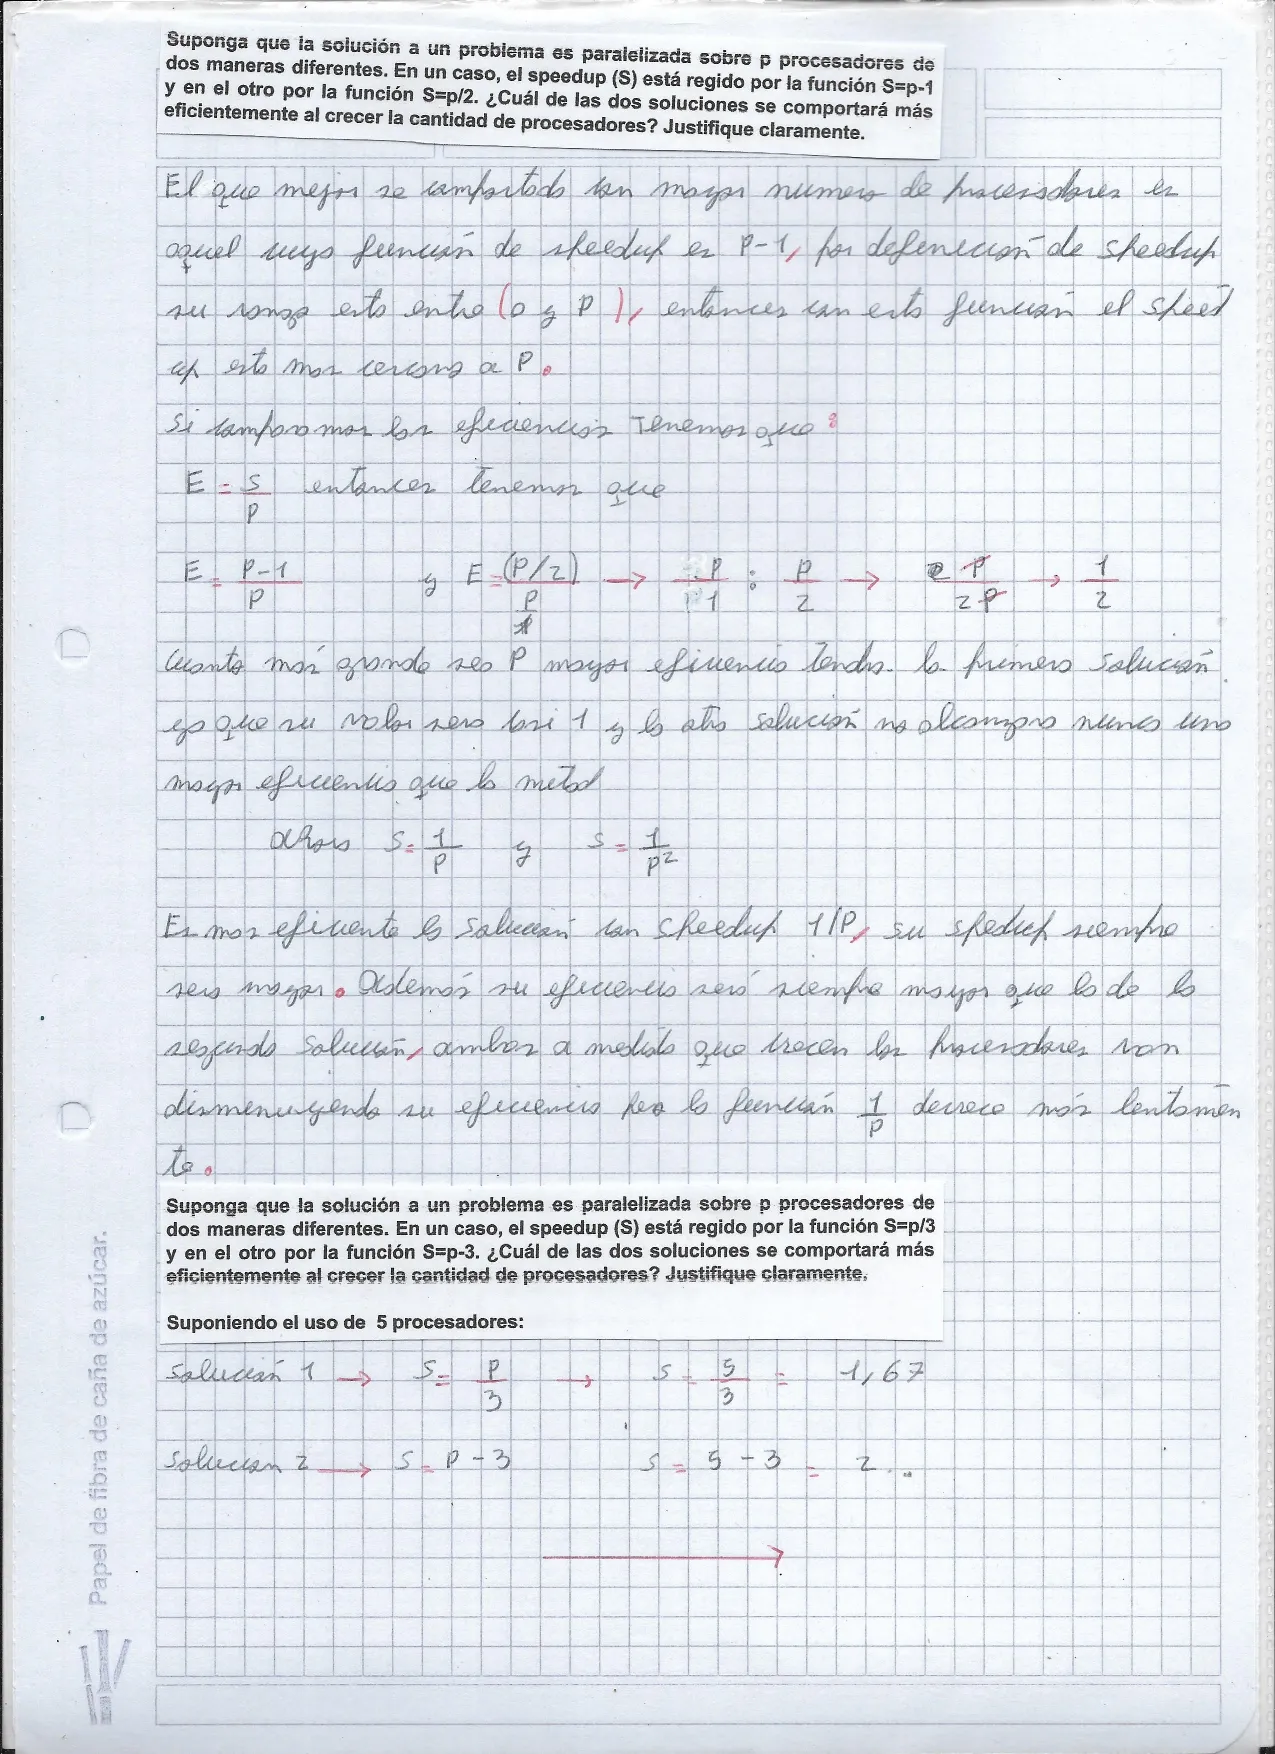 Suponga que la solución a un problema es paralelizada sobre p procesadores de
dos maneras diferentes. En un caso, el speedup (S) está regido por la función S=p-1
y en el otro por la función S=p/2. ¿Cuál de las dos soluciones se comportará más
eficientemente al crecer la cantidad de procesadores? Justifique claramente.
El que mejor se comportado con mayor numero de procesadores es
aquel cuya función de speedup es P-1, por definición de speedup
su rango esta entre (0 y P), entonces con esta función el speed
up esta mas cercano a P.
Si comparamos las eficiencias Tenemos que:
E = S/P entonces tenemos que
E = P-1/P y E = (P/2)/P/1 → P/1 : P/2 → P/2P → 1/2
Cuanto más grande sea P mayor eficiencia tendra la primera solución
ya que su valor sera casi 1 y la otra solución no alcanzara nunca una
mayor eficiencia que la mitad
Ahora S = 1/P y S = 1/P²
Es mas eficiente la solución con speedup 1/P, su spedup siempre
sera mayor. Además su eficiencia será siempre mayor que la de la
segunda solución, ambas a medida que crecen los procesadores van
disminuyendo su eficiencia pero la función 1/P decrece más lentamen
te.
Suponga que la solución a un problema es paralelizada sobre p procesadores de
dos maneras diferentes. En un caso, el speedup (S) está regido por la función S=p/3
y en el otro por la función S=p-3. ¿Cuál de las dos soluciones se comportará más
eficientemente al crecer la cantidad de procesadores? Justifique claramente.
Suponiendo el uso de 5 procesadores:
Solución 1 → S = P/3 → S = 5/3 = 1,67
Solucion 2 → S = P - 3 S = 5 - 3 = 2...
→
Papel de fibra de caña de azúcar.